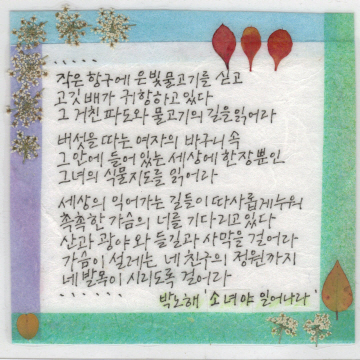 .....
작은 항구에 은빛 물고기를 싣고
고깃배가 귀항하고 있다
그 거친 파도와 물고기의 길을 읽어라
버섯을 따는 여자의 바구니 속
그 안에 들어 있는 세상에 한 장뿐인
그녀의 식물지도를 읽어라
세상의 익어가는 길들이 따사롭게 누워
촉촉한 가슴의 너를 기다리고 있다
산과 광야와 들길과 사막을 걸어라
가슴이 설레는 네 친구의 정원까지
네 발목이 시리도록 걸어라
......
박노해 '소녀야 일어나라'